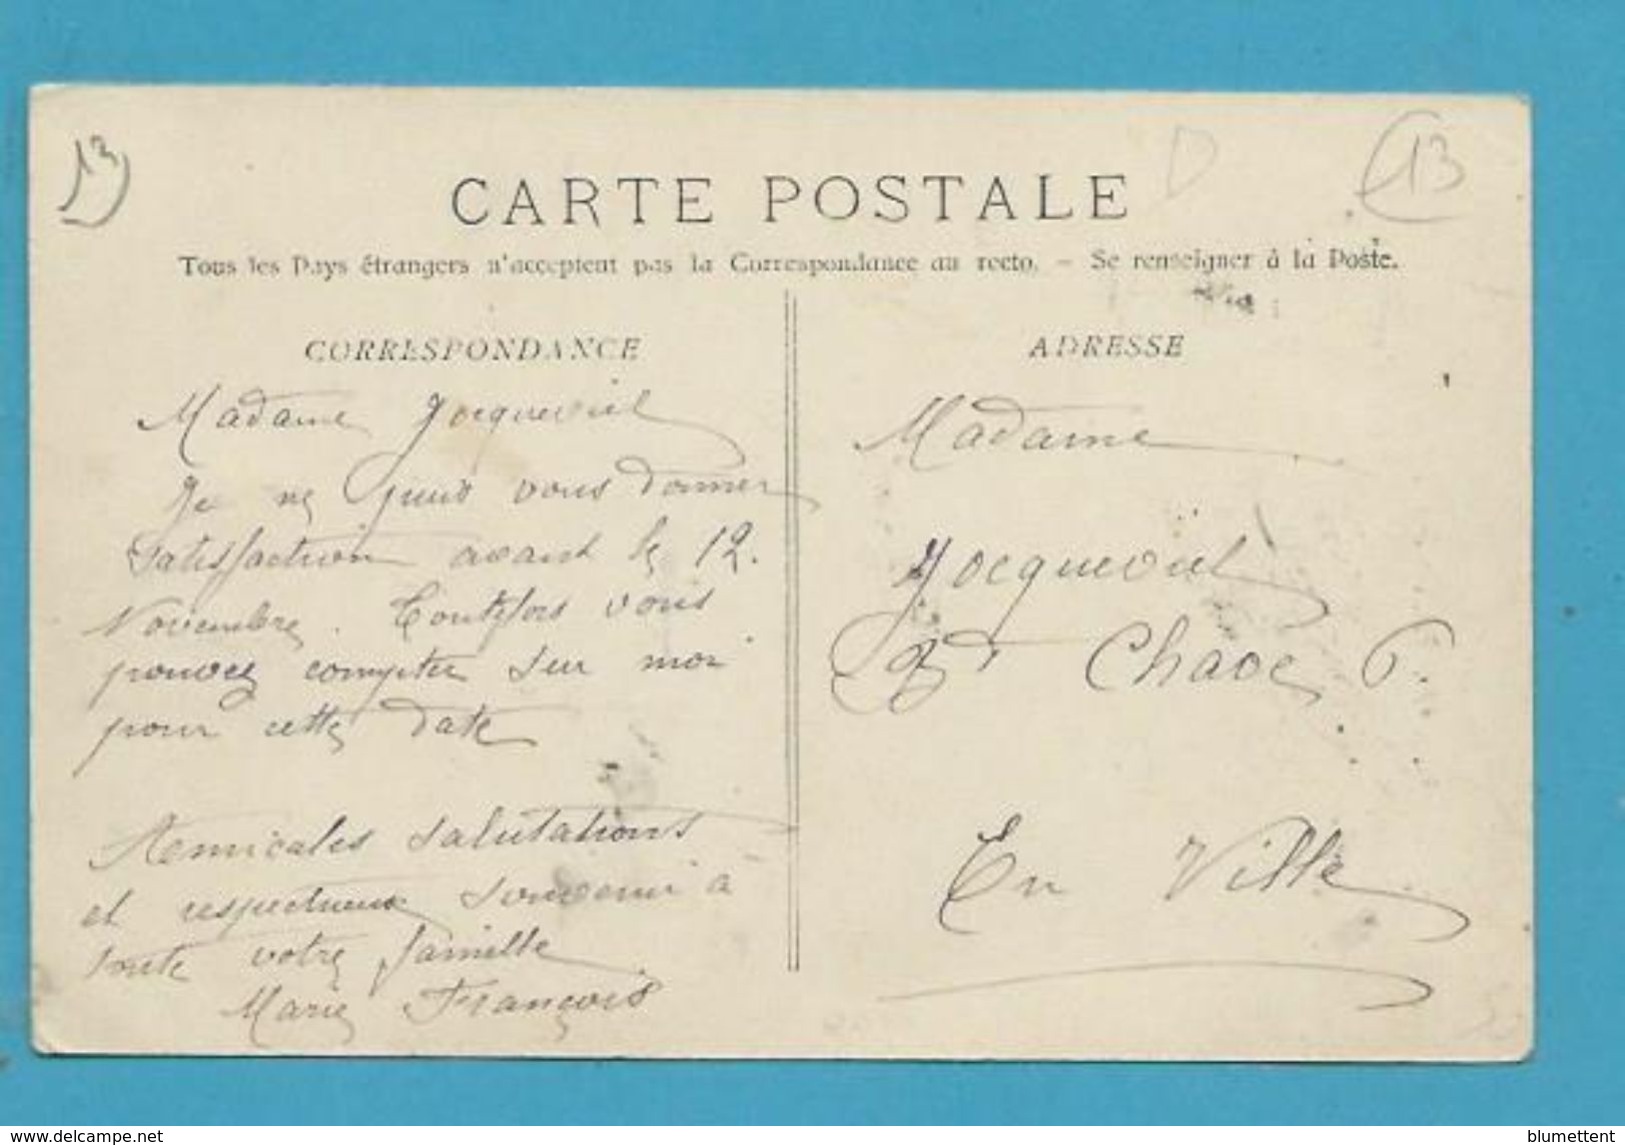 13
13
D
CARTE POSTALE
Tous les Pays étrangers n'acceptent pas la Correspondance au recto. - Se renseigner à la Poste.
CORRESPONDANCE
Madame Jocqueviel
Je ne puis vous donner
satisfaction avant le 12.
Novembre. Toutefois vous
pouvez compter sur moi
pour cette date
Amicales salutations
et respectueux souvenir à
toute votre famille
Marie François
ADRESSE
Madame
Jocqueviel
Bd Chave 6.
En Ville
delcampe.net
blumettent